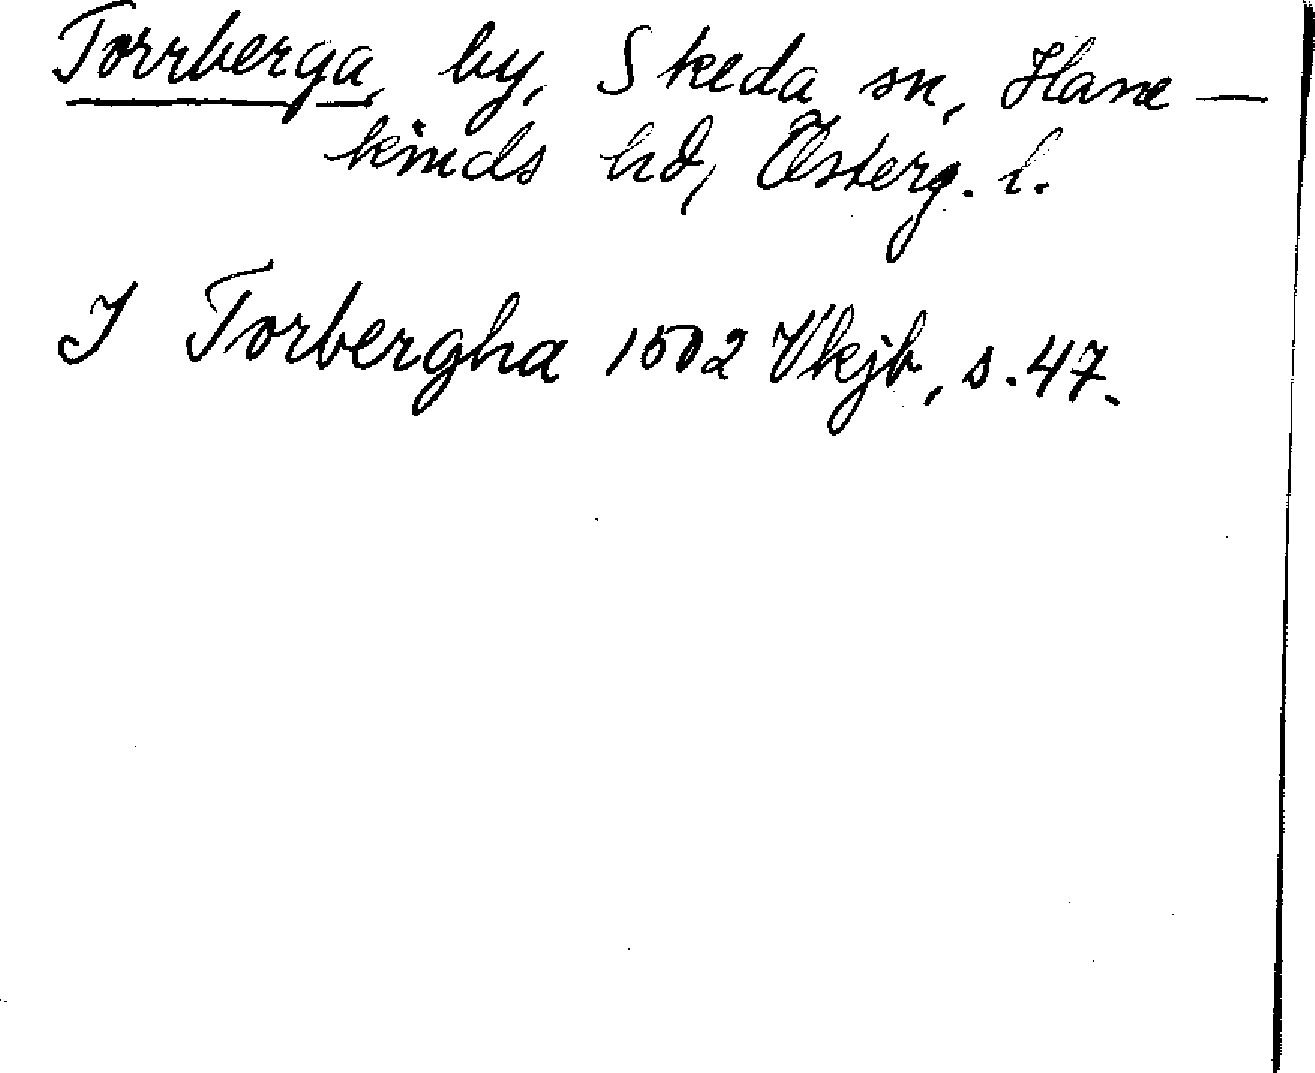 Torrberga, by, Skeda sn, Hane-
kinds hd, Österg. l.
I Torbergha 1502 Vkjb, s. 47.